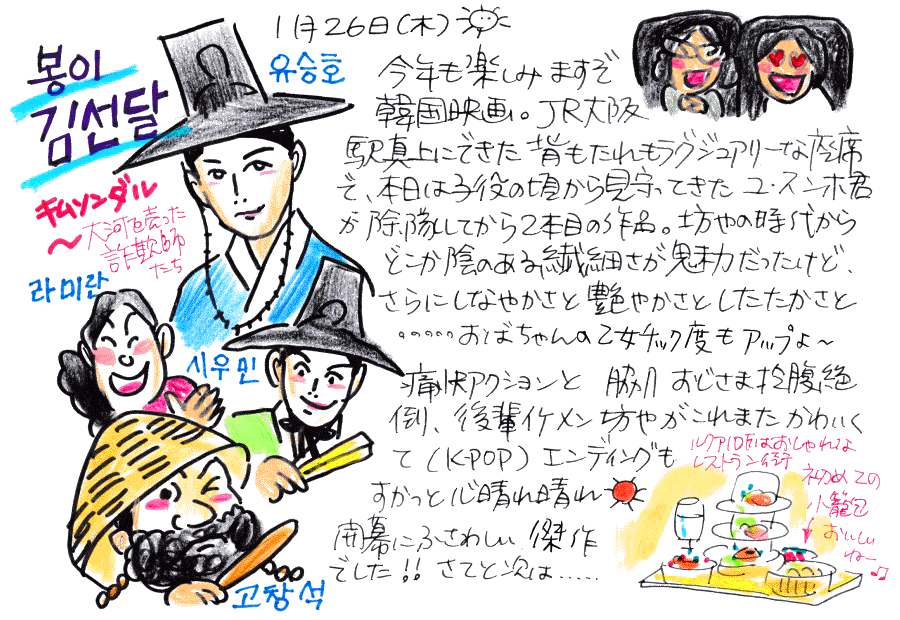 1月26日(木)
봉이
김선달
キムソンダル
～大河を売った
詐欺師
たち
유승호
라미란
시우민
고창석
今年も楽しみますぞ
韓国映画。JR大阪
駅真上にできた背もたれもラグジュアリーな座席
で、本日は子役の頃から見守ってきたユ・スンホ君
が除隊してから2本目の作品。坊やの時代から
どこか陰のある繊細さが魅力だったけど、
さらにしなやかさと艶やかさとしたたかさと
……おばちゃんの乙女チック度もアップよ～
痛快アクションと脇川おじさま抱腹絶
倒、後輩イケメン坊やがこれまたかわいく
て(K-POP)エンディングも
すかっと心晴れ晴れ
開幕にふさわしい傑作
でした!!さてと次は……
ルクア10Fはおしゃれな
レストラン街
初めての
小籠包
おいしい
ねー♫